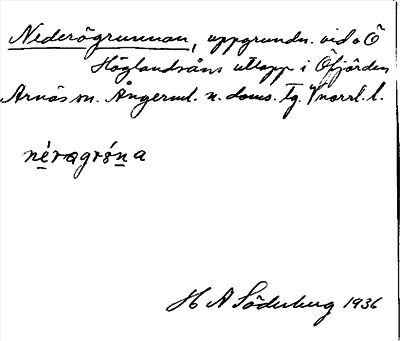 Nederögrunnan, uppgrundn. vid Ö
Höglandsåns utlopp i Öfjärden
Arnäs sn. Ångerml. n. doms. Tg. Vnorrl. l.
néragrǿna
H A Söderberg 1936